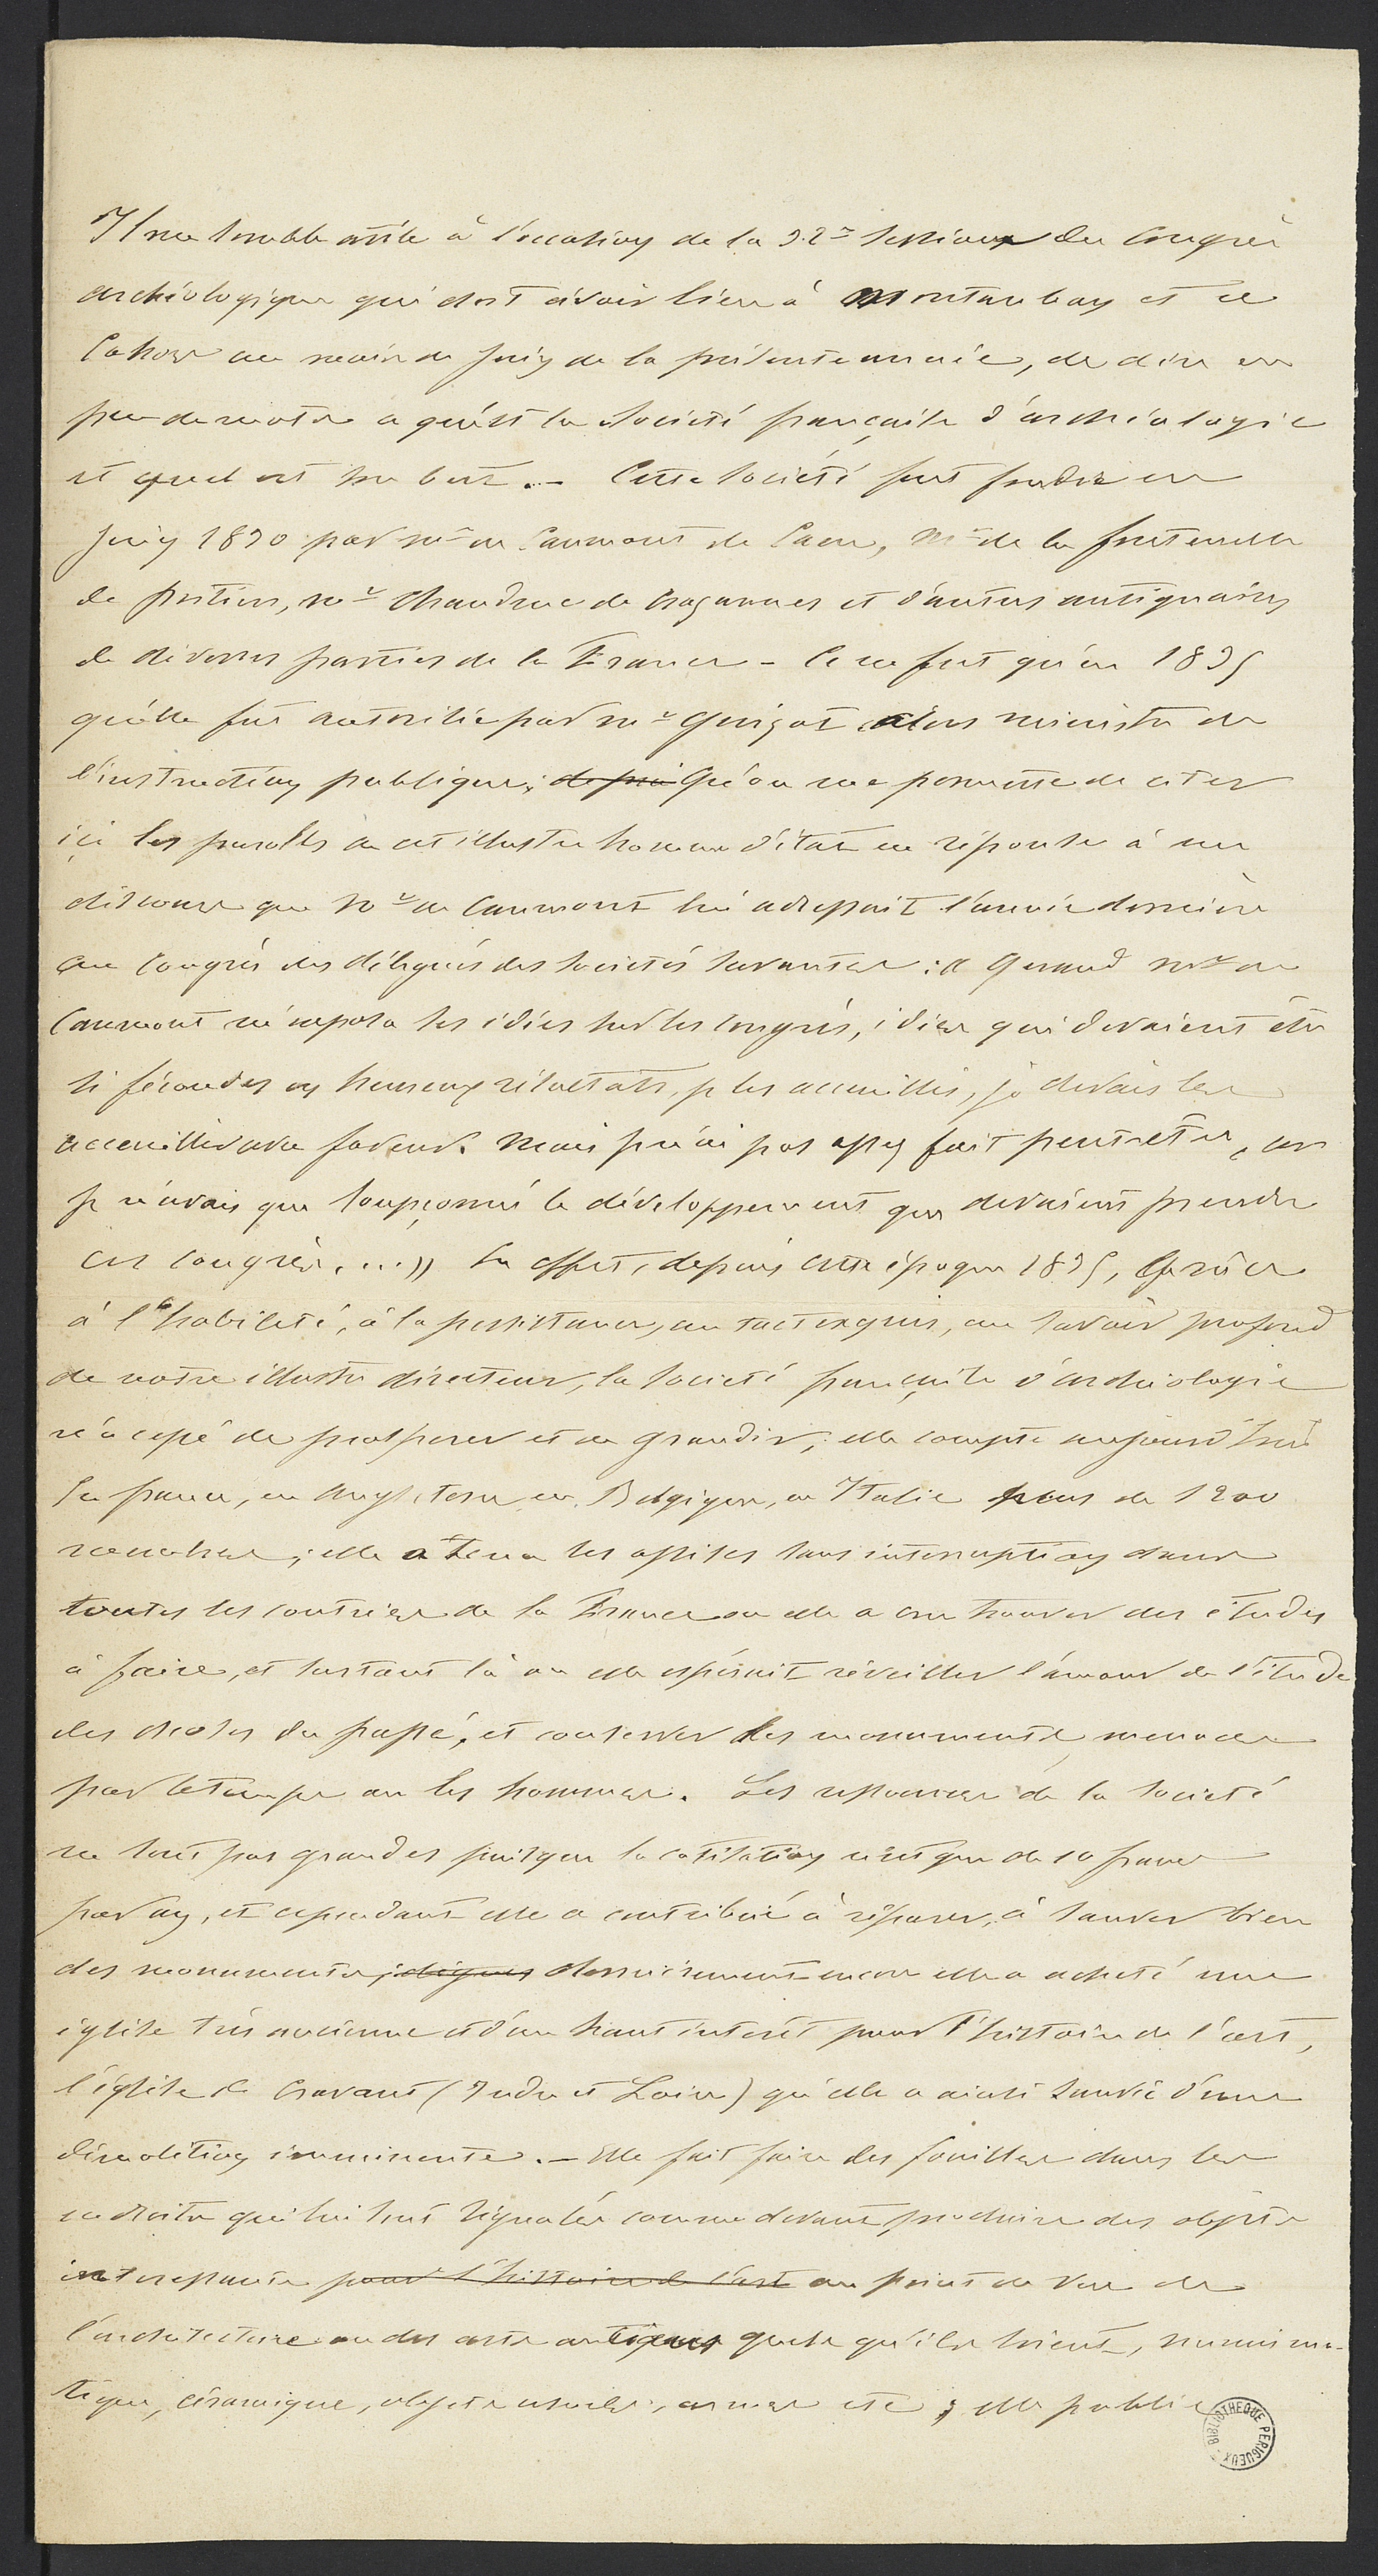 Il me semble utile à l'occasion de la 32e session du Congrès
archéologique qui doit avoir lieu à Montauban et à
Cahors au mois de juin de la présente année, de dire en
peu de mots ce qu'est la Société française d'archéologie
et quel est son but. – Cette société fut fondée en
juin 1830 par Mr de Caumont de Caen, Mr de la fontenelle
de poitiers, Mr Chaudruc de Crazannes et d'autres antiquaires
de diverses parties de la France – Ce ne fut qu'en 1835
qu'elle fut autorisée par Mr Guizot alors ministre de
l'instruction publique; depui qu'on me permette de citer
ici les paroles de cet illustre homme d'état en réponse à un
discours que Mr de Caumont lui adressait l'année dernière
au Congrès des délégués des sociétés savantes: « Quand Mr de
Caumont m'exposa ses idées sur les congrès, idées qui devaient être
si fécondes en heureux résultats, je les accueillis, je devais les
accueillir avec faveur. Mais je n'ai pas assez fait peut-etre, car
je n'avais que soupçonné le développement que devaient prendre
ces congrès... » En effet, depuis cette époque 1835, Grâce
à l'habileté, à la persistance, au tact exquis, au savoir profond
de notre illustre directeur, la société française d'archéologie
n'a cessé de prospérer et de grandir; elle compte aujourd'hui
En france, en Angleterre en Belgique, en Italie plus de 1200
membres; elle a tenu ses assises sans interruption dans
toutes les contrées de la France ou elle a cru trouver des études
à faire, et surtout là ou elle espérait réveiller l'amour de l'étude
des choses du passé, et conserver les monuments menacés
par le temps ou les hommes. Les ressources de la société
ne sont pas grandes puisque la cotisation n'est que de 10 francs
par an, et cependant elle a contribué à réparer, à sauver bien
des monuments; dernièrement encore elle a acheté une
église très ancienne et d'un haut intérêt pour l'histoire de l'art,
l'église de Cravant (Indre et Loire) qu'elle a ainsi sauvée d'une
démolition imminente. – Elle fait faire des fouilles dans les
endroits qui lui sont signalés comme devant produire des objets
interessants pour l'histoire de l'art au point de vue de
l'architecture ou des arts antiques quels qu'ils soient, numisma-
tique, céramique, objets usuels, armes etc; elle publie
BIBLIOTHEQUE PERIGUEUX